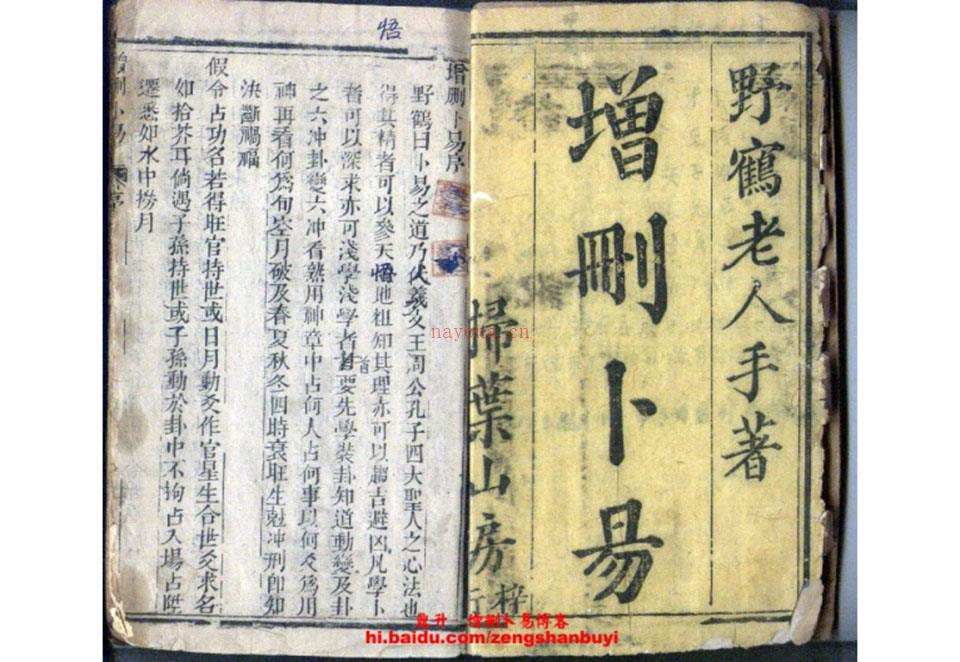 野鶴老人手著
增刪卜易
掃葉山房
梓行
悟
增刪卜易序
野鶴曰卜易之道乃伏羲文王周公孔子四大聖人之心法也
得其精者可以參天悟地粗知其理亦可以趨吉避凶凡學卜
者可以深求亦可淺學淺學者首要先學裝卦知道動變及卦
首
之六冲卦變六冲看熟用神章中占何人占何事以何爻爲用
神再看何爲旬空月破及春夏秋冬四時衰旺生尅冲刑即知
決斷禍福
假令占功名若得旺官持世或日月動爻作官星生合世爻求名
如拾芥耳倘遇子孫持世或子孫動於卦中不拘占入場占陞
遷悉如水中撈月
增刪卜易 序
nayona.cn
鼎升 增刪卜易博客
hi.baidu.com/zengshanbuyi